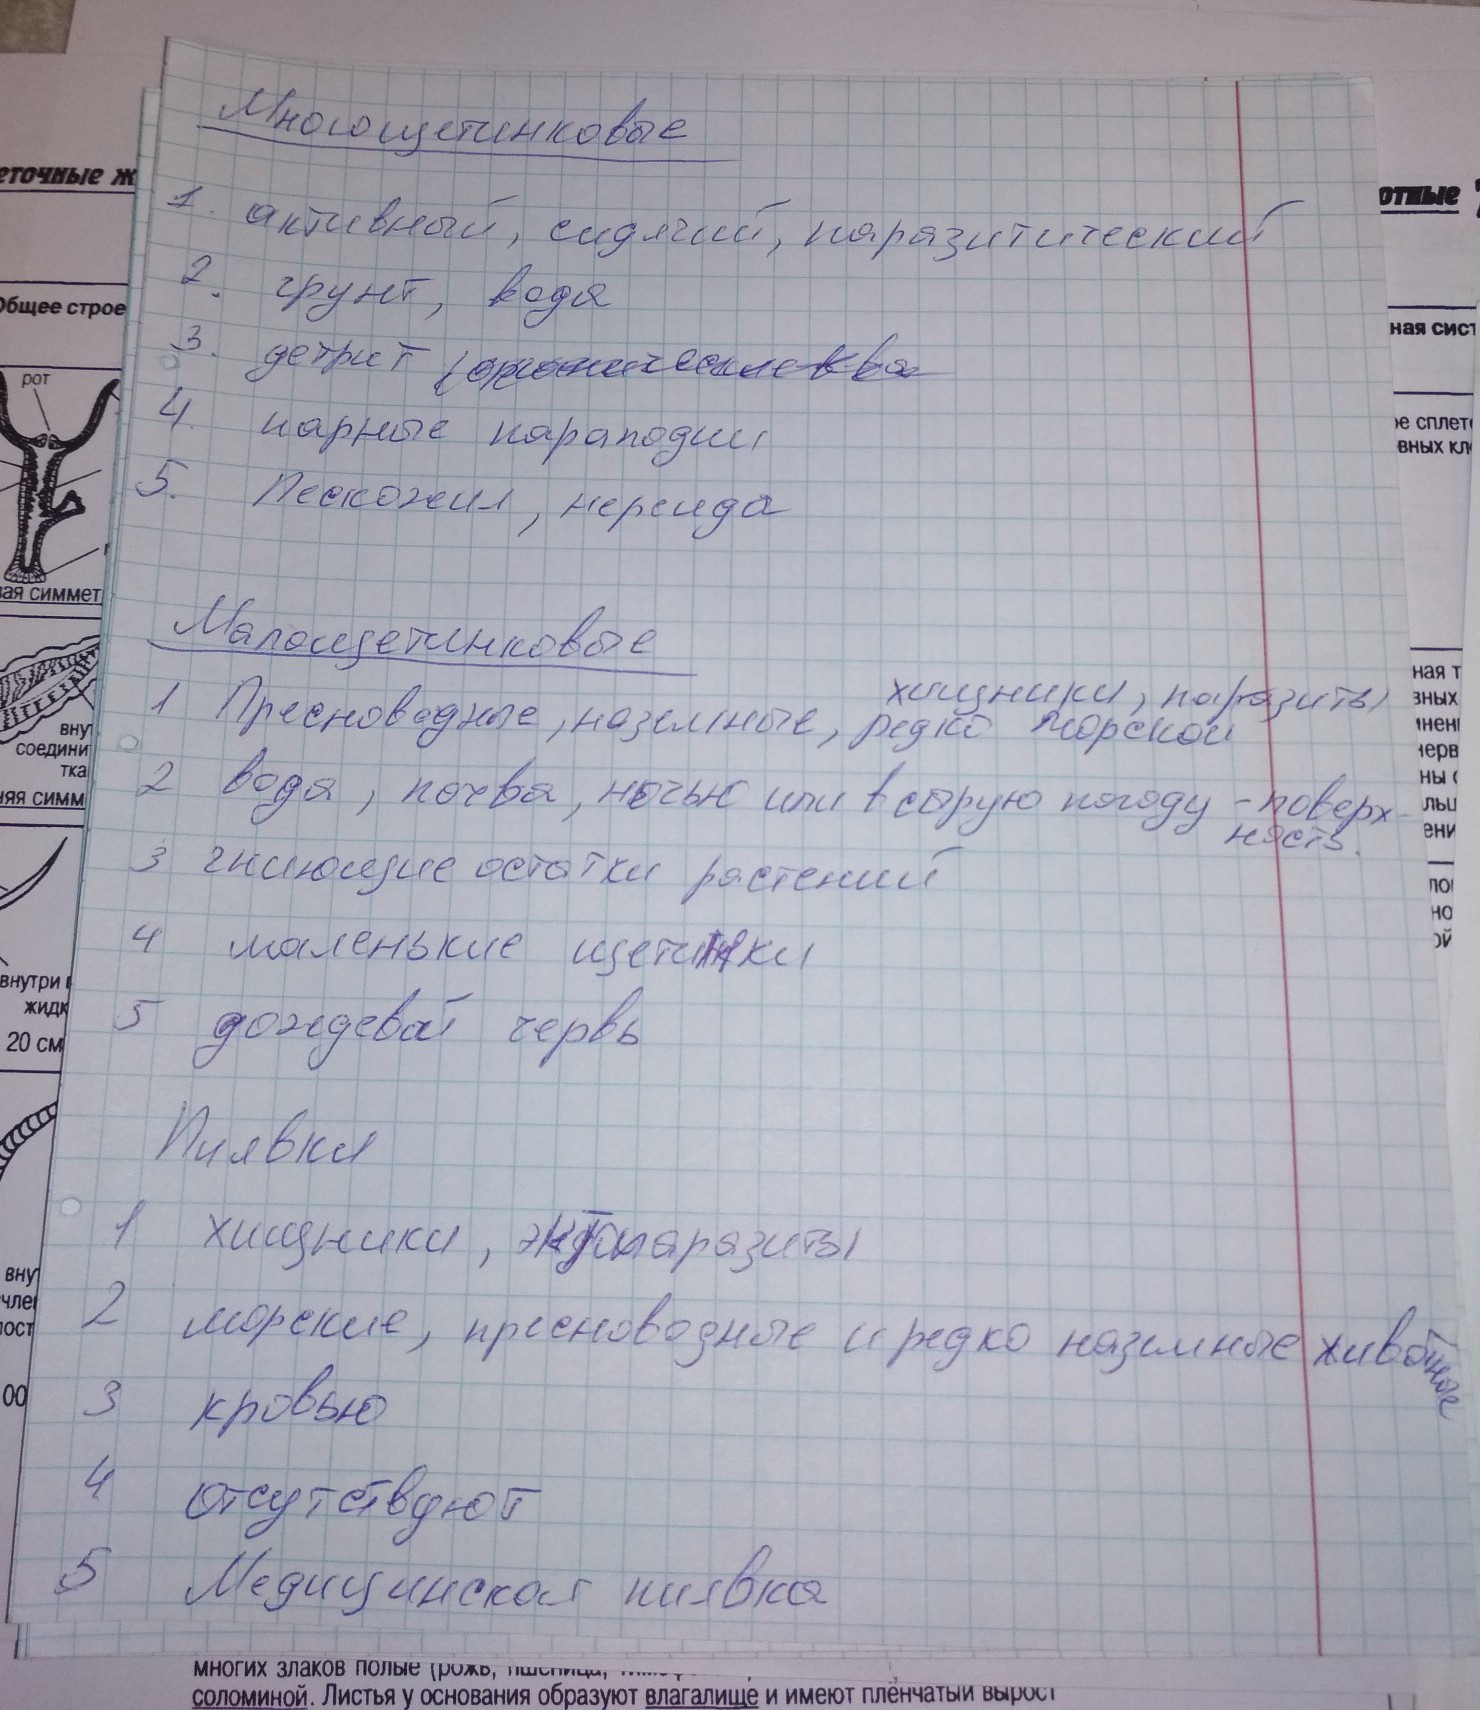 Многощетинковые
1. активный, сидячий, паразитический
2. грунт, вода
3. детрит (органические в-ва
4. парные параподии
5. Пескожил, нереида
Малощетинковые
хищники, паразиты
1 Пресноводные, наземные, редко морской
2 вода, почва, ночью или в сырую погоду - поверх-
ность.
3 гниющие остатки растений
4 маленькие щетинки
5 дождевой червь
Пиявки
1 хищники, эктопаразиты
2 морские, пресноводные и редко наземные животные
3 кровью
4 отсутствуют
5 Медицинская пиявка
еточные ж
Общее строе
рот
вая симмет
вну
соедини
тка
няя симм
внутри
жидк
20 см
вну
член
пост
00
отные
ная сист
ое сплет
вных кл
ная т
вных
нерв
ны
льц
ени
но
ой
многих злаков полые (рожь, пшеница,
соломиной. Листья у основания образуют влагалище и имеют плёнчатый вырост